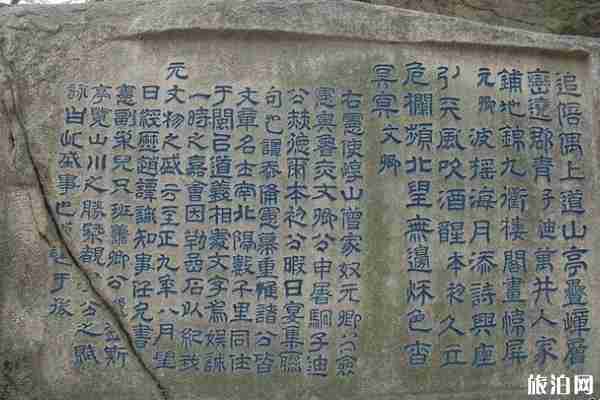 追陪偶上道山亭疊嶂層
巒遶郡青子迪萬井人家
鋪地錦九衢樓閣畫幃屏
元卿波搖海月添詩興座
引天風吹酒醒本初久立
危欄頻北望無邊秋色杳
冥冥文卿
右憲使崞山僧家奴元卿公僉
憲奧魯赤文卿公申屠駉子迪
公赫德爾本初公暇日宴集聯
句也譚忝僃憲幕重惟諸公皆
文章名士南北隔數千里同仕
于閩官道義相處文字爲娛誠
一時之嘉會因勒岳石以紀我
元文物之盛云至正九年八月望
日經歷趙譚識知事任允書
憲副朶兒只班善卿公斯
亭覽山川之勝槩觀公之賦
詠曰此盛事也題于後
旅泊网